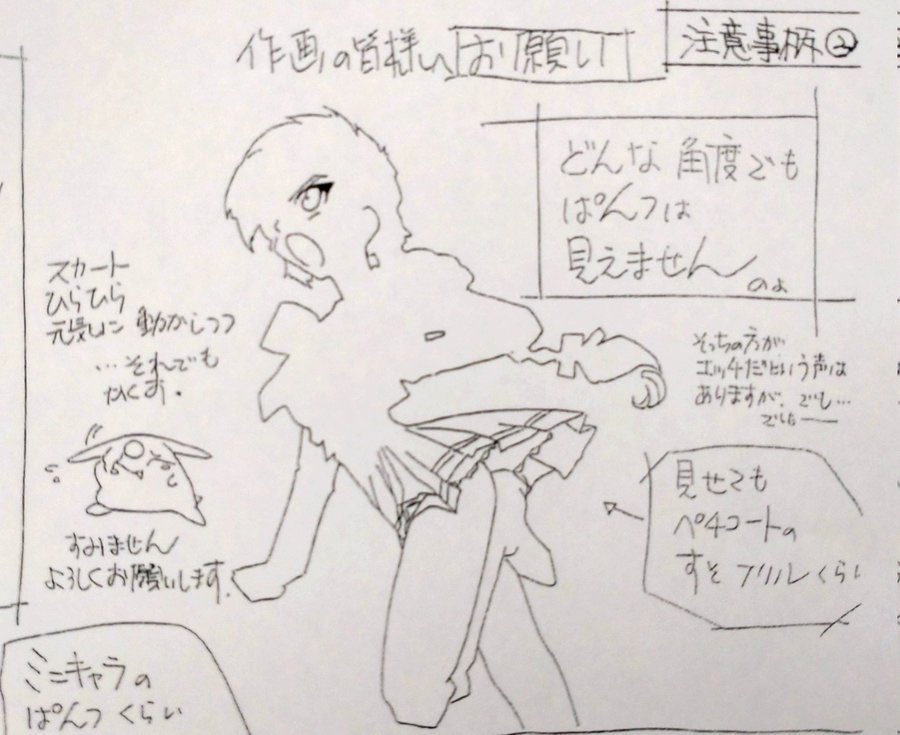 作画の皆様へお願い
注意事柄②
どんな角度でも
ぱんつは
見えません
のよ
スカート
ひらひら
元気に動かしつつ
…それでも
かくす。
すみません
よろしくお願いします。
そっちの方が
エッチだという声は
ありますが、でも…
でも——
見せても
ペチコートの
すそフリルくらい
ミニキャラの
ぱんつくらい